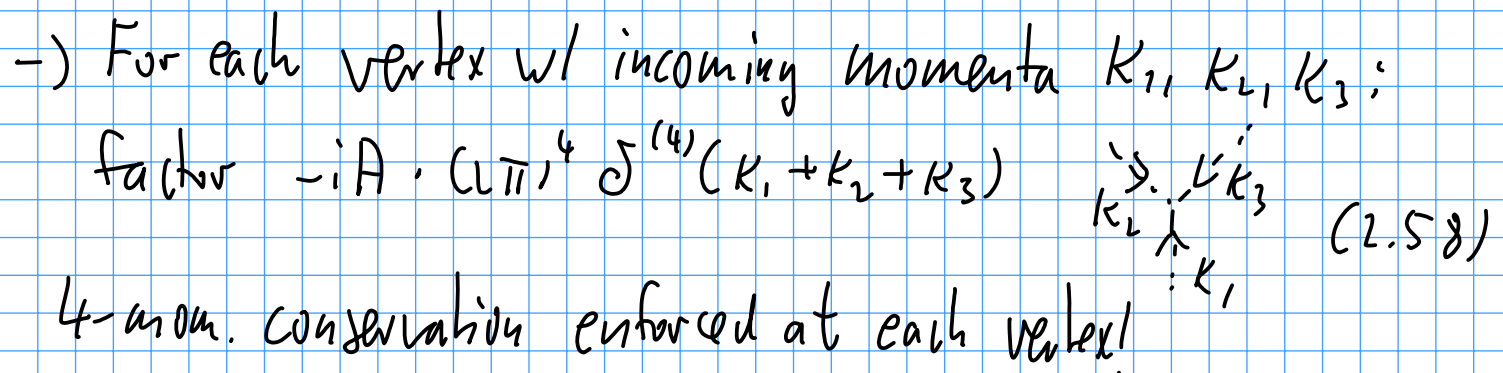 -) For each vertex w/ incoming momenta K₁, K₂, K₃:
factor -iA · (2π)⁴ δ⁽⁴⁾(K₁+K₂+K₃) K₂ K₃ K₁ (2.58)
4-mom. conservation enforced at each vertex!